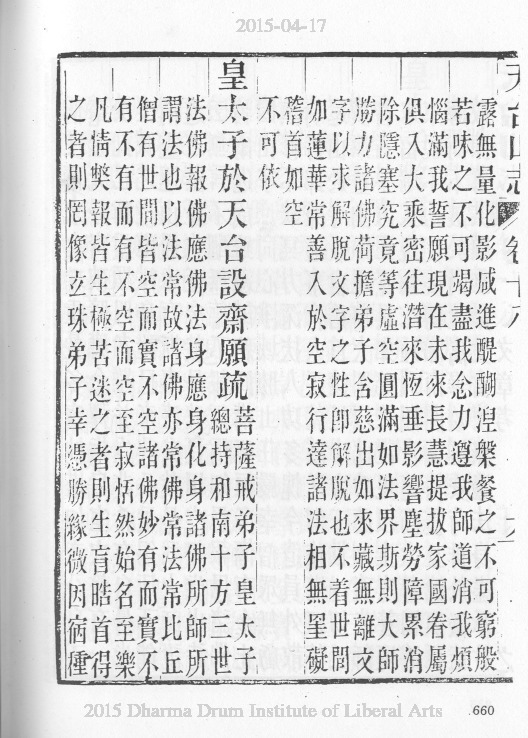 2015-04-17
天台山志 卷十六
露無量化影咸進醍醐湼槃餐之不可窮般
若味之不可竭盡我念力遵我師道消我煩
惱滿我誓願現在未來長慧提拔家國眷屬
俱入大乘密往潛來恆垂影響塵勞障累消
除隱塞究竟等虛空圓滿如法界斯則大師
勝力諸佛荷擔弟子含慈出如來藏無離文
字以求解脫文字之性卽解脫也不着世間
如蓮華常善入於空寂行達諸法相無罣礙
稽首如空
不可依
皇太子於天台設齋願疏
菩薩戒弟子皇太子
總持和南十方三世
法佛報佛應佛法身應身化身諸佛所師所
謂法也以法常故諸佛亦常佛常法常比丘
僧有世間皆空而實不空諸佛妙有而實不
有不有而有不空而空至寂恬然始名至樂
凡情獘報皆生極苦迷之者則生盲晧首得
之者則罔像玄珠弟子幸憑勝緣微因宿種
2015 Dharma Drum Institute of Liberal Arts
660